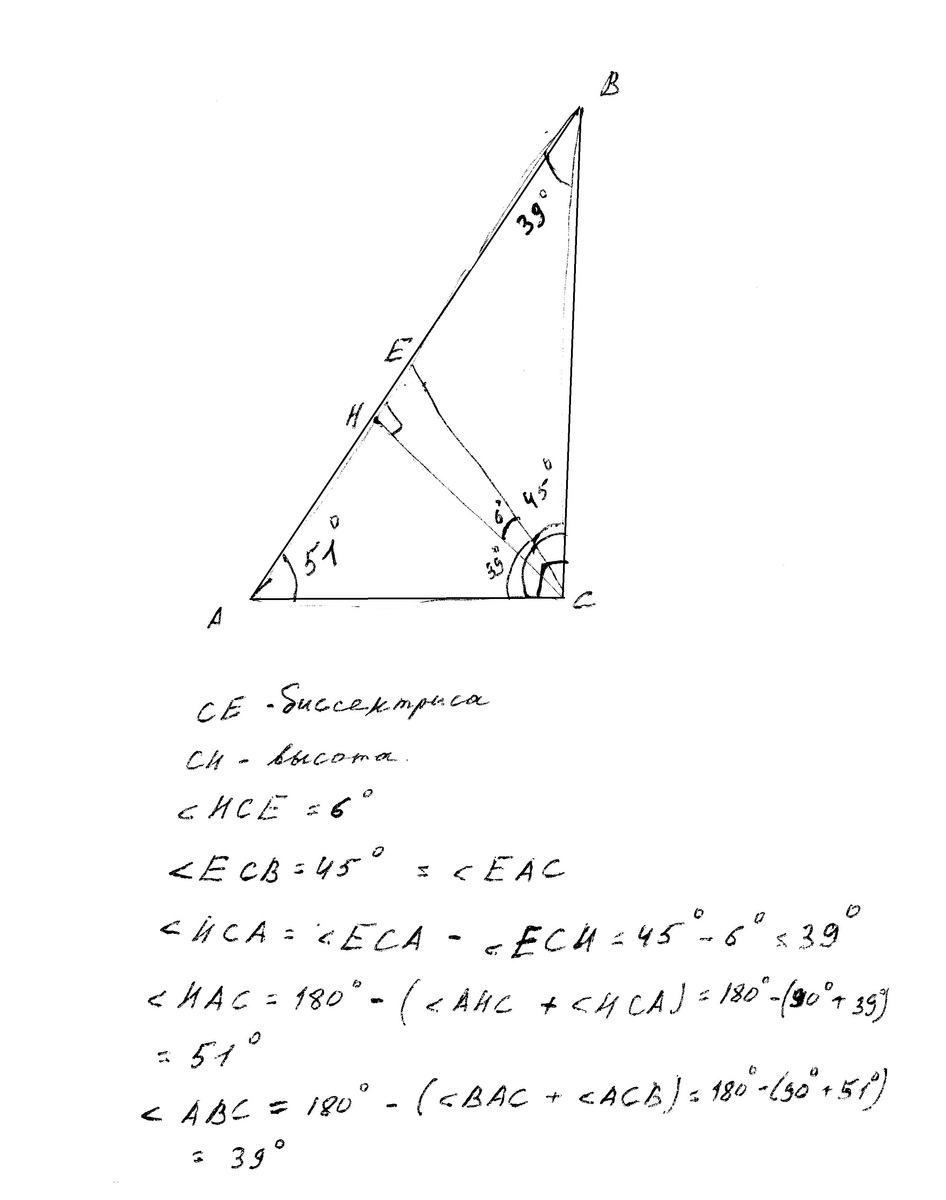 B
39°
E
H
45°
6°
39°
51°
A
C
CE - биссектриса
CH - высота.
<HCE = 6°
<ECB = 45° = <EAC
<HCA = <ECA - <ECH = 45° - 6° = 39°
<HAC = 180° - (<AHC + <HCA) = 180° - (90° + 39°)
= 51°
<ABC = 180° - (<BAC + <ACB) = 180° - (90° + 51°)
= 39°